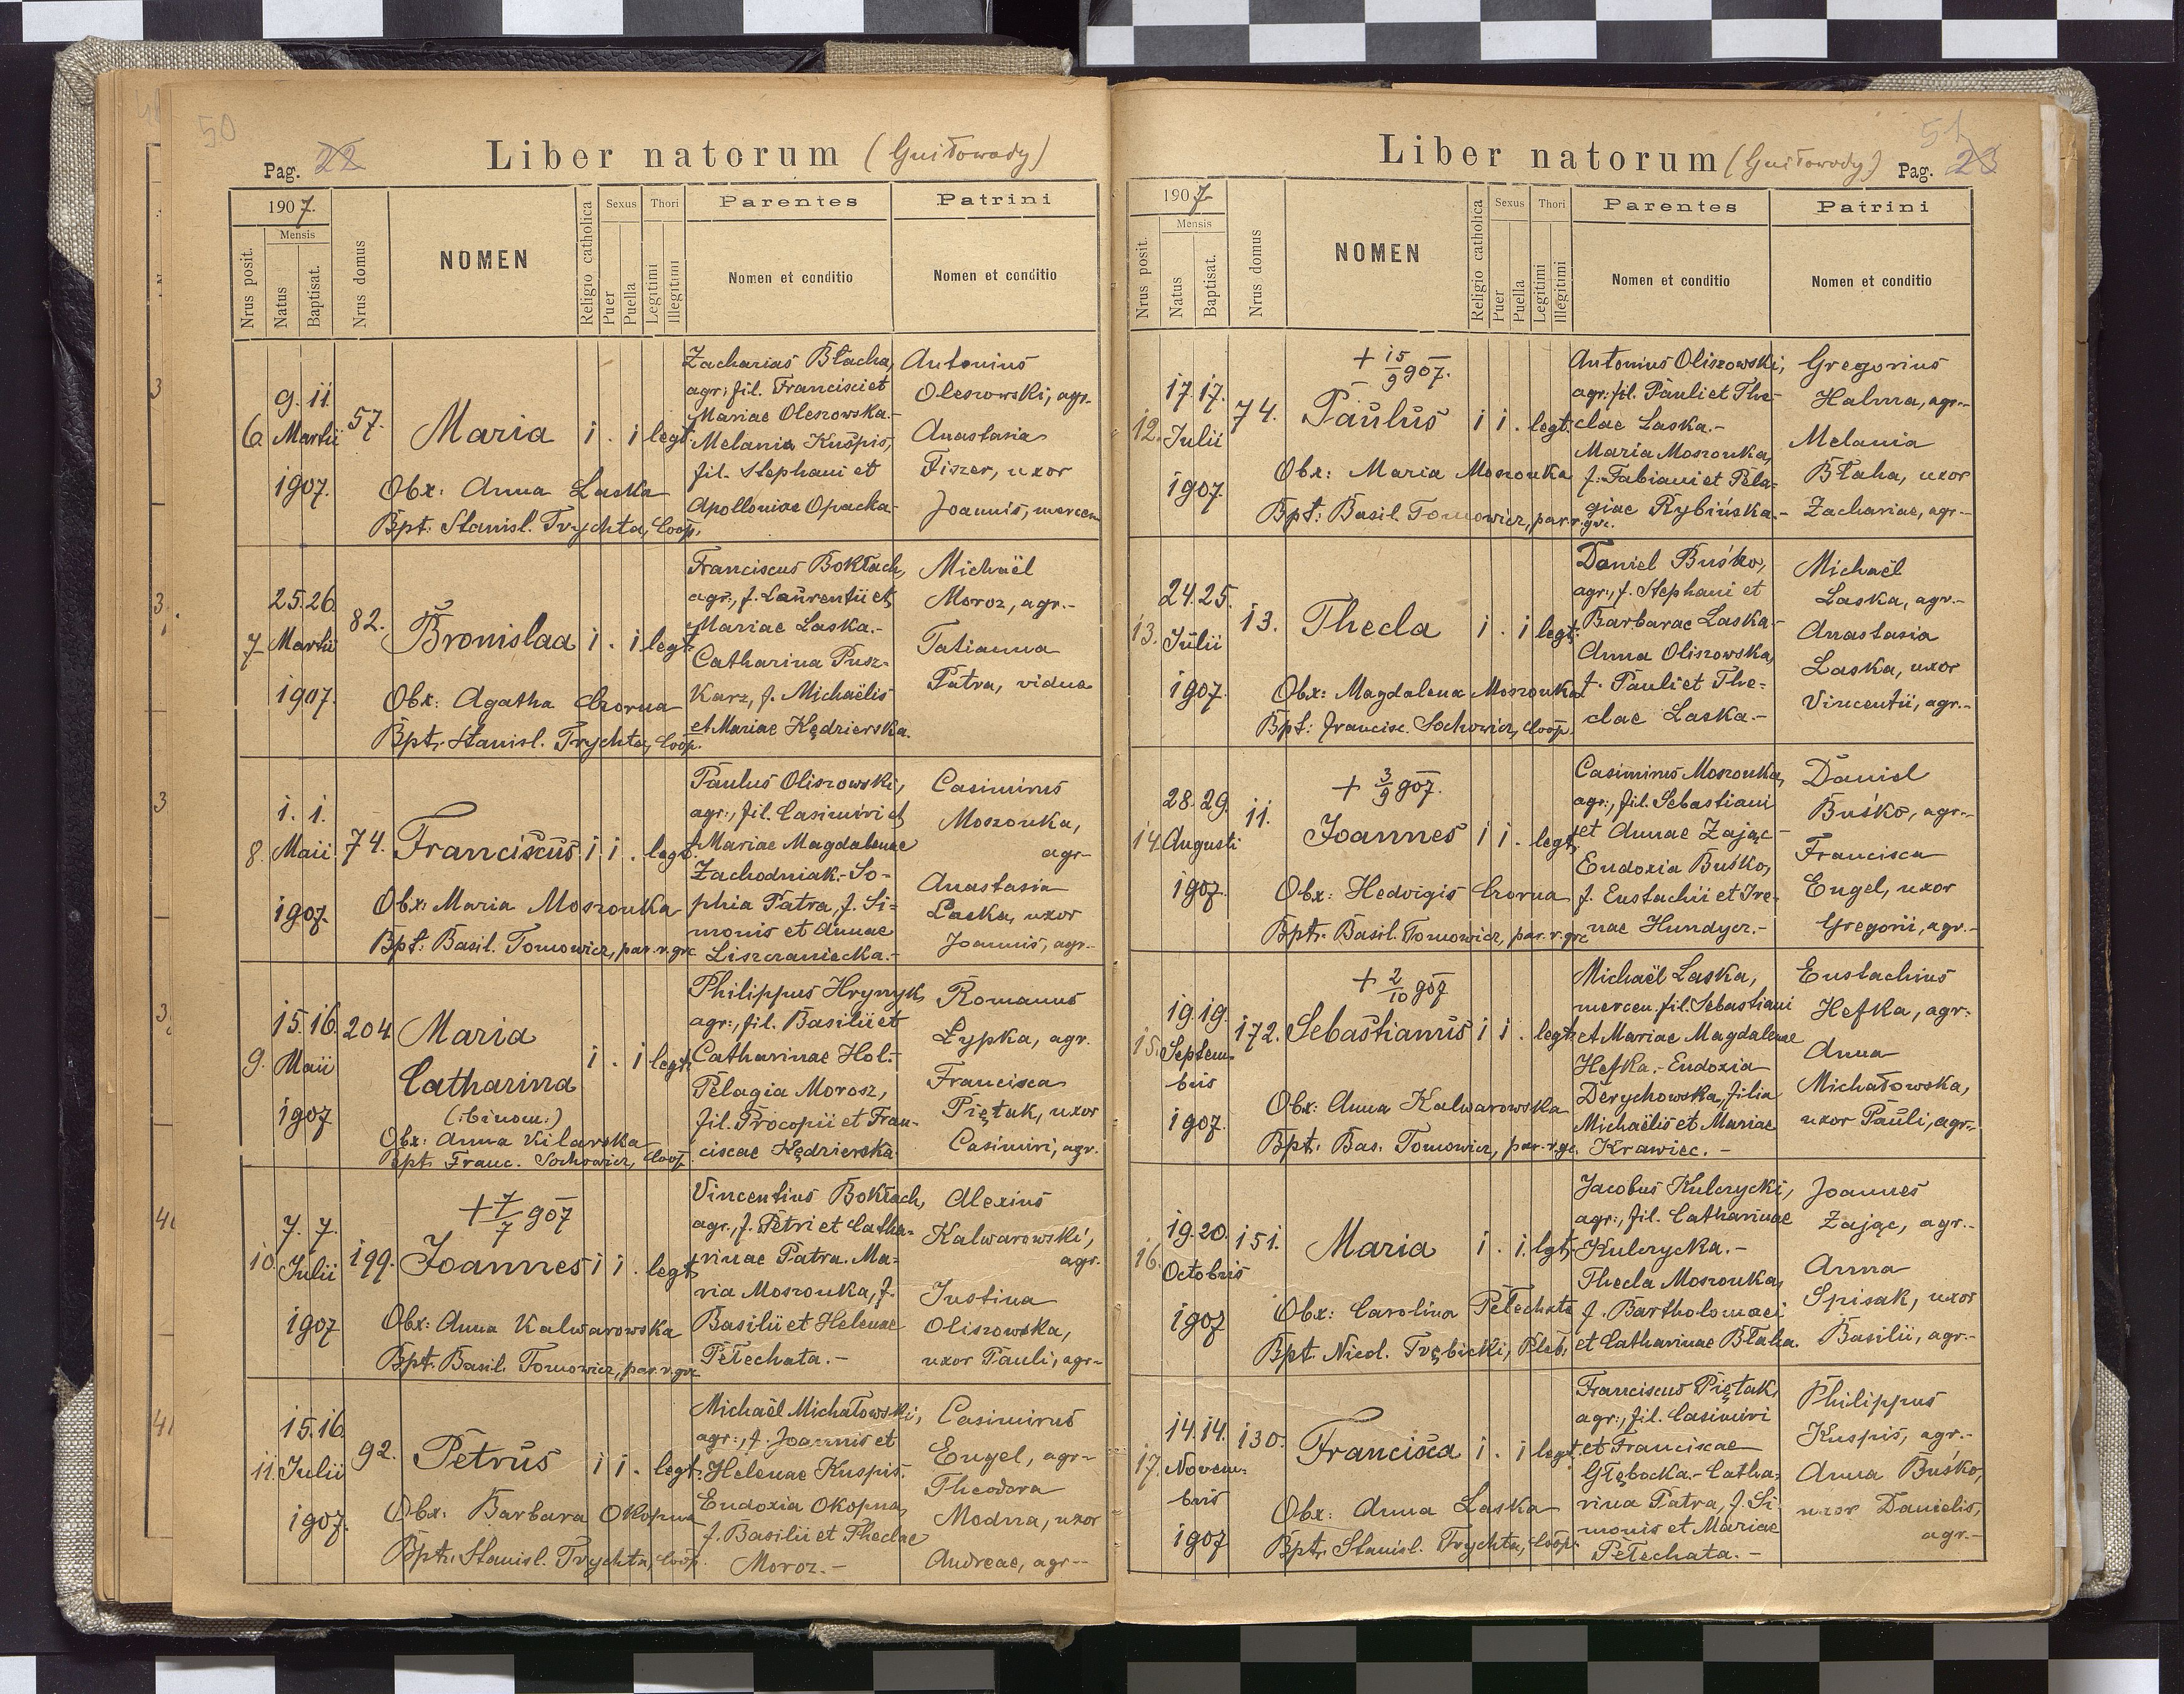 50
Pag. 22
Liber natorum (Gniłowody)
1907.
Nrus posit.
Mensis
Natus
Baptisat.
Nrus domus
NOMEN
Religio catholica
Sexus
Puer
Puella
Thori
Legitimi
Illegitimi
Parentes
Nomen et conditio
Patrini
Nomen et conditio
6. 9. 11. Martii 1907. 57. Maria 1 . 1 legt.
Obx: Anna Laska
Bpt: Stanisl. Trychta, Coop.
Zacharias Błacha,
agr: fil. Francisci et
Mariae Oleszowska.-
Melania Kuspis,
fil. Stephani et
Apolloniae Opacka-
Antonius
Oleszowski, agr.
Anastasia
Fiszer, uxor
Joannis, mercen
7. 25. 26. Martii 1907. 82. Bronislaa 1 . 1 legt.
Obx: Agatha Czorna
Bpt: Stanisl. Trychta, Coop.
Franciscus Bokłach,
agr., f. Laurentii et
Mariae Laska.-
Catharina Pusz-
karz, f. Michaëlis
et Mariae Kędzierska.
Michaël
Moroz, agr.-
Tatianna
Patra, vidua
8. 1. 1. Maii 1907. 74. Franciscus 1 1 . legt.
Obx: Maria Moszonka
Bpt: Basil. Tomowicz, par. r. grc
Paulus Oliszowski,
agr:, fil. Casimiri et
Mariae Magdalenae
Zachodniak.- So-
phia Patra, f. Si=
monis et Annae
Liszczaniecka.-
Casimirus
Moszonka,
agr-
Anastasia
Laska, uxor
Joannis, agr.-
9. 15. 16. Maii 1907 204 Maria
Catharina 1 . 1 legt.
(:binom:)
Obx: Anna Kilarska
Bpt. Franc. Sochowicz, Coop.
Philippus Hrynyk,
agr:, fil. Basilii et
Catharinae Hol.-
Pelagia Morosz,
fil. Procopii et Fran-
ciscae Kędzierska.
Romanus
Łypka, agr.
Francisca
Piętak, uxor
Casimiri, agr.
10. 7. 7. Julii 1907 199. + 7/7 907
Joannes 1 1 . legt.
Obx: Anna Kalwarowska
Bpt. Basil. Tomowicz, par. r. grc
Vincentius Bokłach,
agr., f. Petri et Catha-
rinae Patra. Ma-
ria Moszonka, f.
Basilii et Helenae
Pełechata.-
Alexius
Kalwarowski,
agr.
Justina
Oliszowska,
uxor Pauli, agr-
11. 15. 16. Julii 1907. 92. Petrus 1 1 . legt.
Obx: Barbara Okopna
Bpt: Stanisl. Trychta, Coop.
Michaël Michałowski,
agr:, f. Joannis et
Helenae Kuspis.
Eudoxia Okopna,
f. Basilii et Theclae
Moroz.-
Casimirus
Engel, agr-
Theodora
Modna, uxor
Andreae, agr--
51
Liber natorum (Gniłowody) Pag. 23
1907
Nrus posit.
Mensis
Natus
Baptisat.
Nrus domus
NOMEN
Religio catholica
Sexus
Puer
Puella
Thori
Legitimi
Illegitimi
Parentes
Nomen et conditio
Patrini
Nomen et conditio
12. 17. 17. Julii 1907. 74. + 15/9 907.
Paulus 1 1 . legt.
Obx: Maria Moszonka
Bpt: Basil. Tomowicz, par. r. grc.
Antonius Oliszowski,
agr: fil. Pauli et The-
clae Laska.-
Maria Moszonka,
f. Fabiani et Pela-
giae Rybińska.-
Gregorius
Halma, agr.-
Melania
Błaha, uxor
Zachariae, agr-
13. 24. 25. Julii 1907. 13. Thecla 1 . 1 legt.
Obx: Magdalena Moszonka
Bpt: Francisc. Sochowicz, Coop
Daniel Buśko,
agr:, f. Stephani et
Barbarae Laska-
Anna Oliszowska,
f. Pauli et The=
clae Laska.-
Michaël
Laska, agr.-
Anastasia
Laska, uxor
Vincentii, agr.-
14. 28. 29. Augusti 1907. 11. + 3/9 907.
Joannes 1 1 . legt.
Obx: Hedvigis Czorna
Bpt. Basil. Tomowicz, par. r. grc
Casimirus Moszonka,
agr:, fil. Sebastiani
et Annae Zając-
Eudoxia Buśko,
f. Eustachii et Ire-
nae Hundycz.-
Daniel
Buśko, agr.-
Francisca
Engel, uxor
Gregorii, agr.-
15. 19. 19. Septem-
bris 1907. 172. + 2/10 907
Sebastianus 1 1 . legt.
Obx: Anna Kalwarowska
Bpt. Bas. Tomowicz, par. r. gc.
Michaël Laska,
mercen. fil. Sebastiani
et Mariae Magdalenae
Hefka.- Eudoxia
Derychowska, filia
Michaëlis et Mariae
Krawiec.-
Eustachius
Hefka, agr.
Anna
Michałowska,
uxor Pauli, agr.-
16. 19. 20. Octobris 1907 151. Maria 1 . 1. lgt.
Obx: Carolina Pełechata
Bpt. Nicol. Trębicki, Pleb.
Jacobus Kulczycki,
agr:, fil. Catharinae
Kulczycka.-
Thecla Moszonka,
f. Bartholomaei
et Catharinae Błaha.
Joannes
Zając, agr.-
Anna
Spisak, uxor
Basilii, agr.-
17. 14. 14. Novem-
bris 1907 130. Francisca 1 . 1 legt.
Obx: Anna Laska
Bpt. Stanisl. Trychta, Coop.
Franciscus Piętak,
agr:, fil. Casimiri
et Franciscae
Głębocka.- Catha-
rina Patra, f. Si
monis et Mariae
Pełechata.-
Philippus
Kuspis, agr.-
Anna Buśko,
uxor Danielis,
agr.-